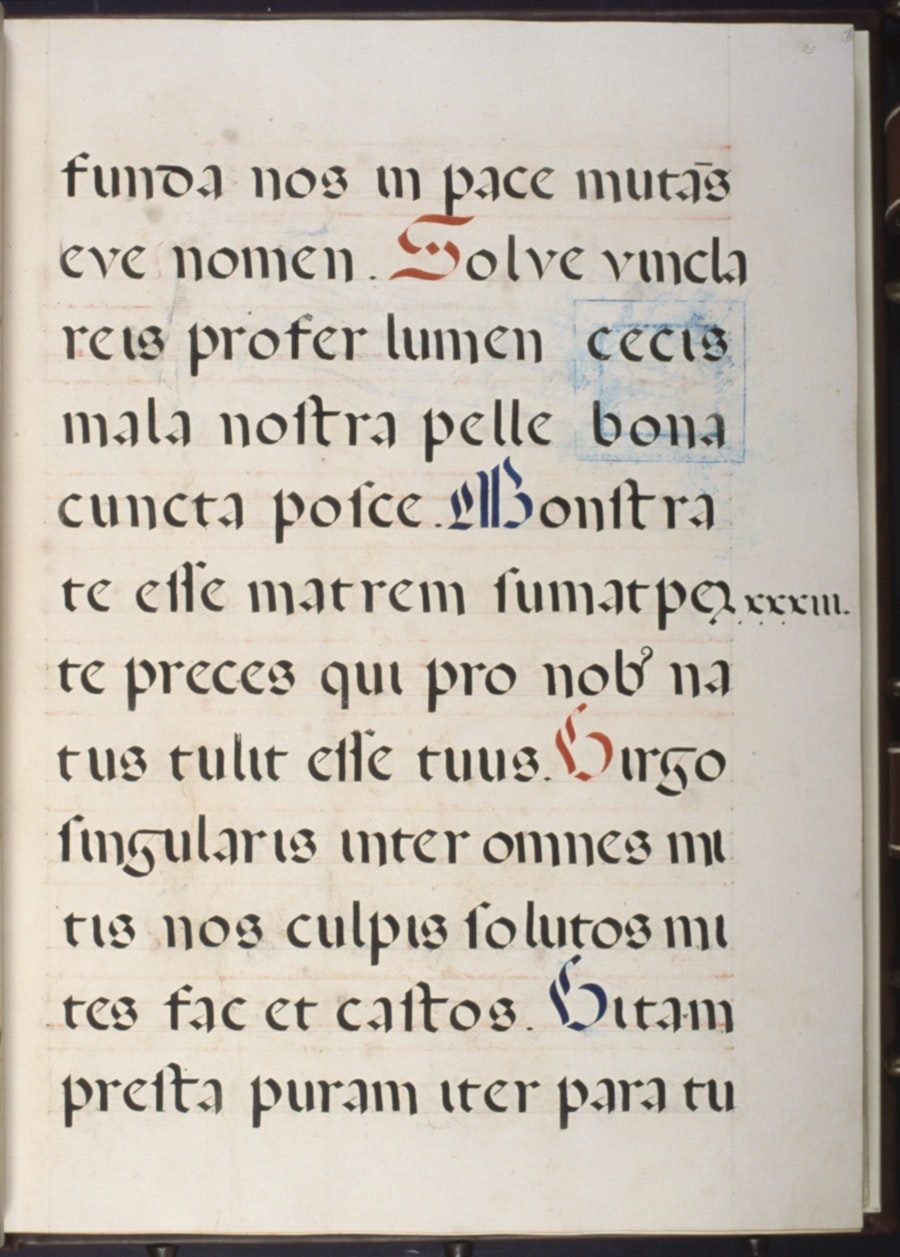 funda nos in pace mutās
eve nomen. Solve vincla
reis profer lumen cecis
mala noſtra pelle bona
cuncta poſce. Monſtra
te eſſe matrem ſumat per xxxiii.
te preces qui pro nob᾽ na
tus tulit eſſe tuus. Virgo
ſingularis inter omnes mi
tis nos culpis ſolutos mi
tes fac et caſtos. Vitam
preſta puram iter para tu